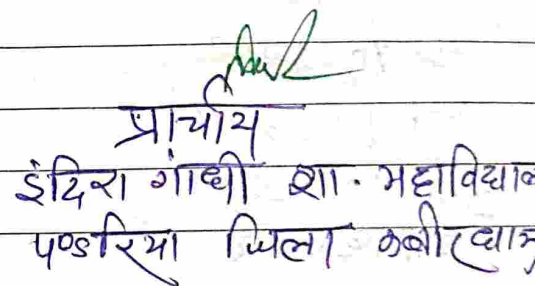 प्राचार्य
इंदिरा गांधी शा. महाविद्याल
पण्डरिया जिला कबीरधाम